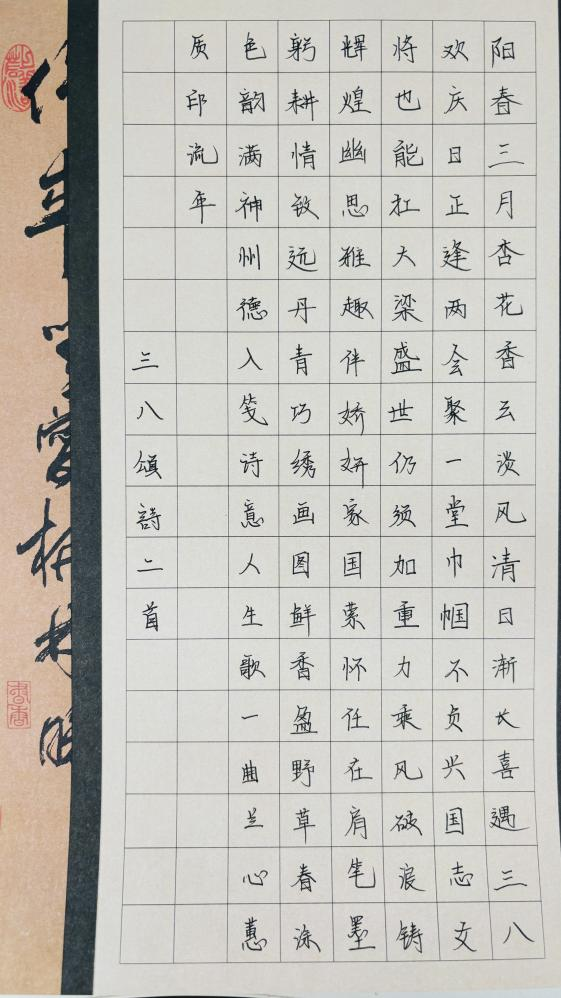 阳春三月杏花香云淡风清日渐长喜遇三八
欢庆日正逢两会聚一堂巾帼不负兴国志女
将也能扛大梁盛世仍须加重力乘风破浪铸
辉煌幽思雅趣伴娇妍家国萦怀任在肩笔墨
躬耕情致远丹青巧绣画图鲜香盈野草春涂
色韵满神州德入笺诗意人生歌一曲兰心蕙
质印流年
三八颂詩二首